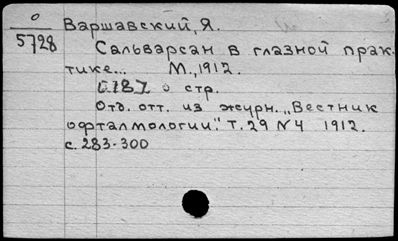 0
5728
Варшавский, Я.
Сальварсан в глазной прак-
тике... М., 1912.
[18] с стр.
Отд. отт. из журн. „Вестник
офталмологии." Т. 29 N 4 1912.
с. 283-300